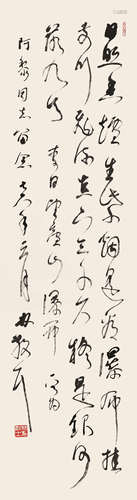 日照香爐生紫烟遥看瀑布挂
前川飛流直下三千尺疑是銀河
落九天 李白望廬山瀑布
阿黎同志留念 年 月 林散耳